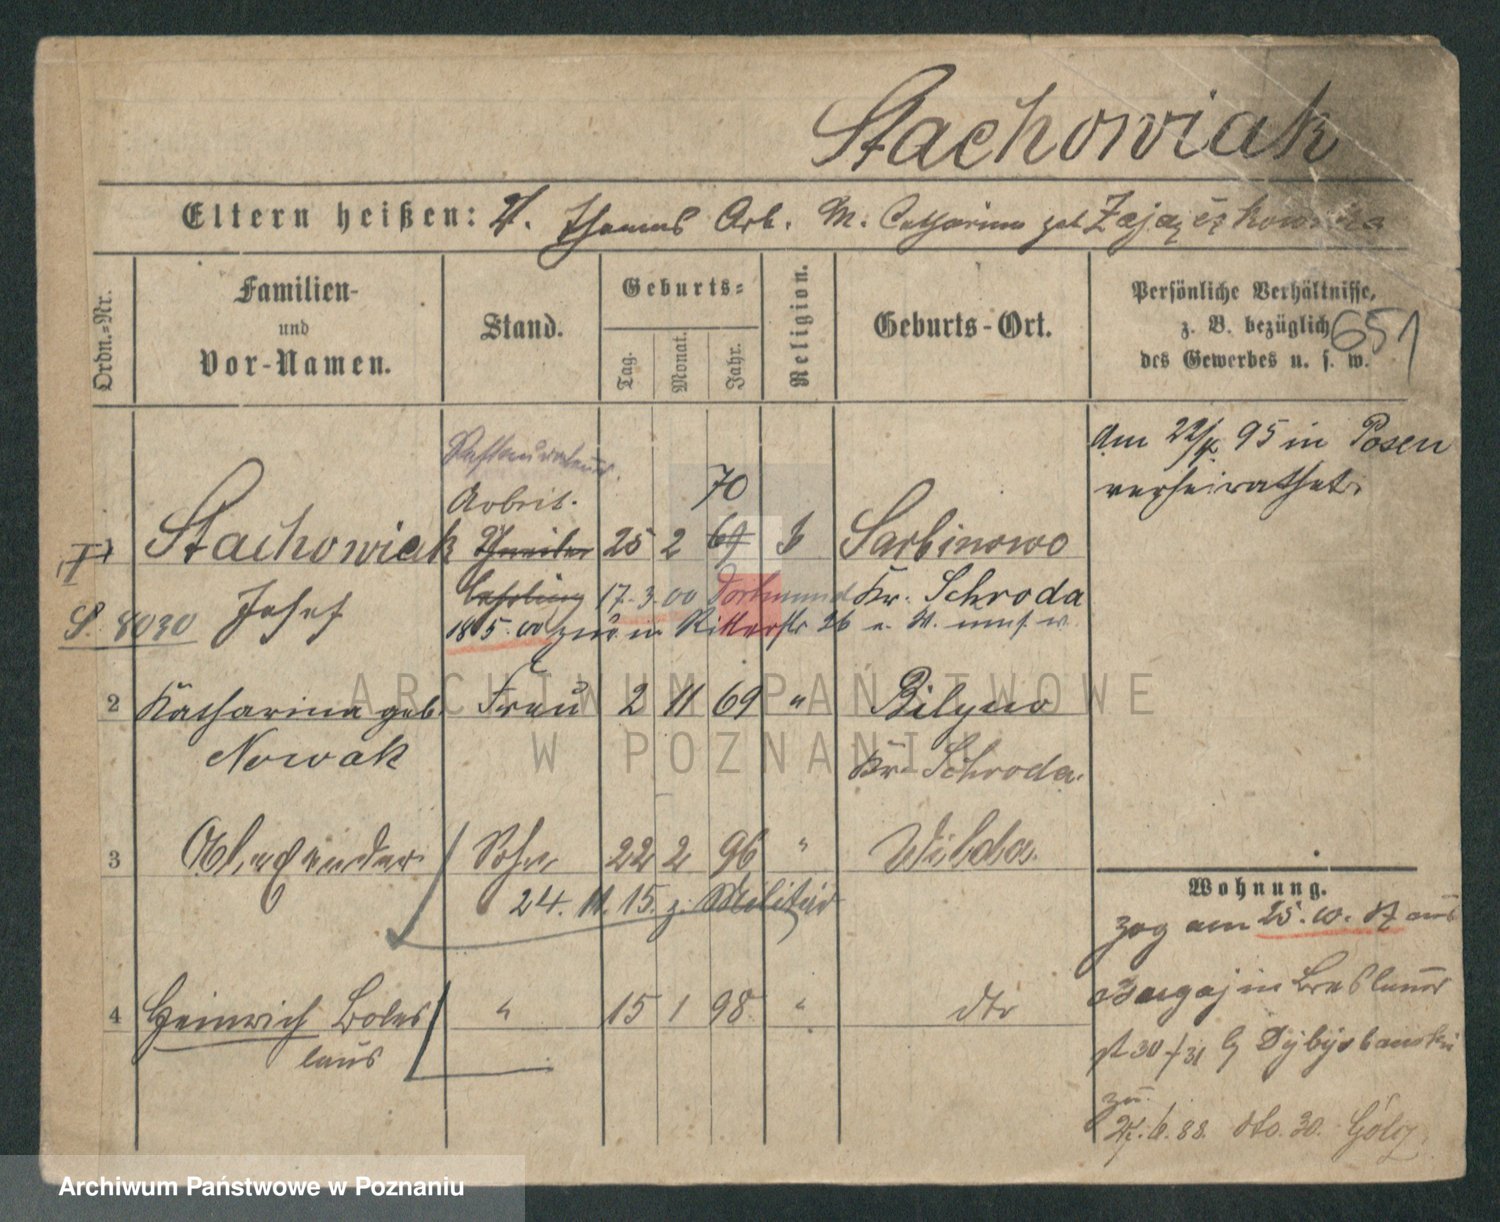 Stachowiak
Eltern heißen: V. Thomas Arb. M. Catharina geb
Ordn.-Nr.
Familien-
und
Vor-Namen.
Stand.
Geburts-
Tag.
Monat.
Jahr.
Religion.
Geburts-Ort.
Persönliche Verhältnisse,
z. B. bezüglich
des Gewerbes u. s. w.
651
am 22/ 95 in Posen
verheirathet.
Restaurateur
Arbeit.
70
1 Stachowiak 25 2 69 k Sarbinowo
S. 8030 Josef 17.3.00 Dortmund Kr. Schroda
18 5. 00 zur. in Ritterstr 26
2 Katharina geb. Frau 2 11 69 " Bilyno
Nowak Kr. Schroda.
3 Alexander Sohn 22 2 96 " Wilda.
24. 11. 15 z. Militär
4 Heinrich Boles " 15 1 98 " dto
laus
Wohnung.
zog am 25. 10. 87 aus
in Breslauer
st 30/31
27. 6. 88. dto. 30.
Archiwum Państwowe
w Poznaniu
Archiwum Państwowe w Poznaniu